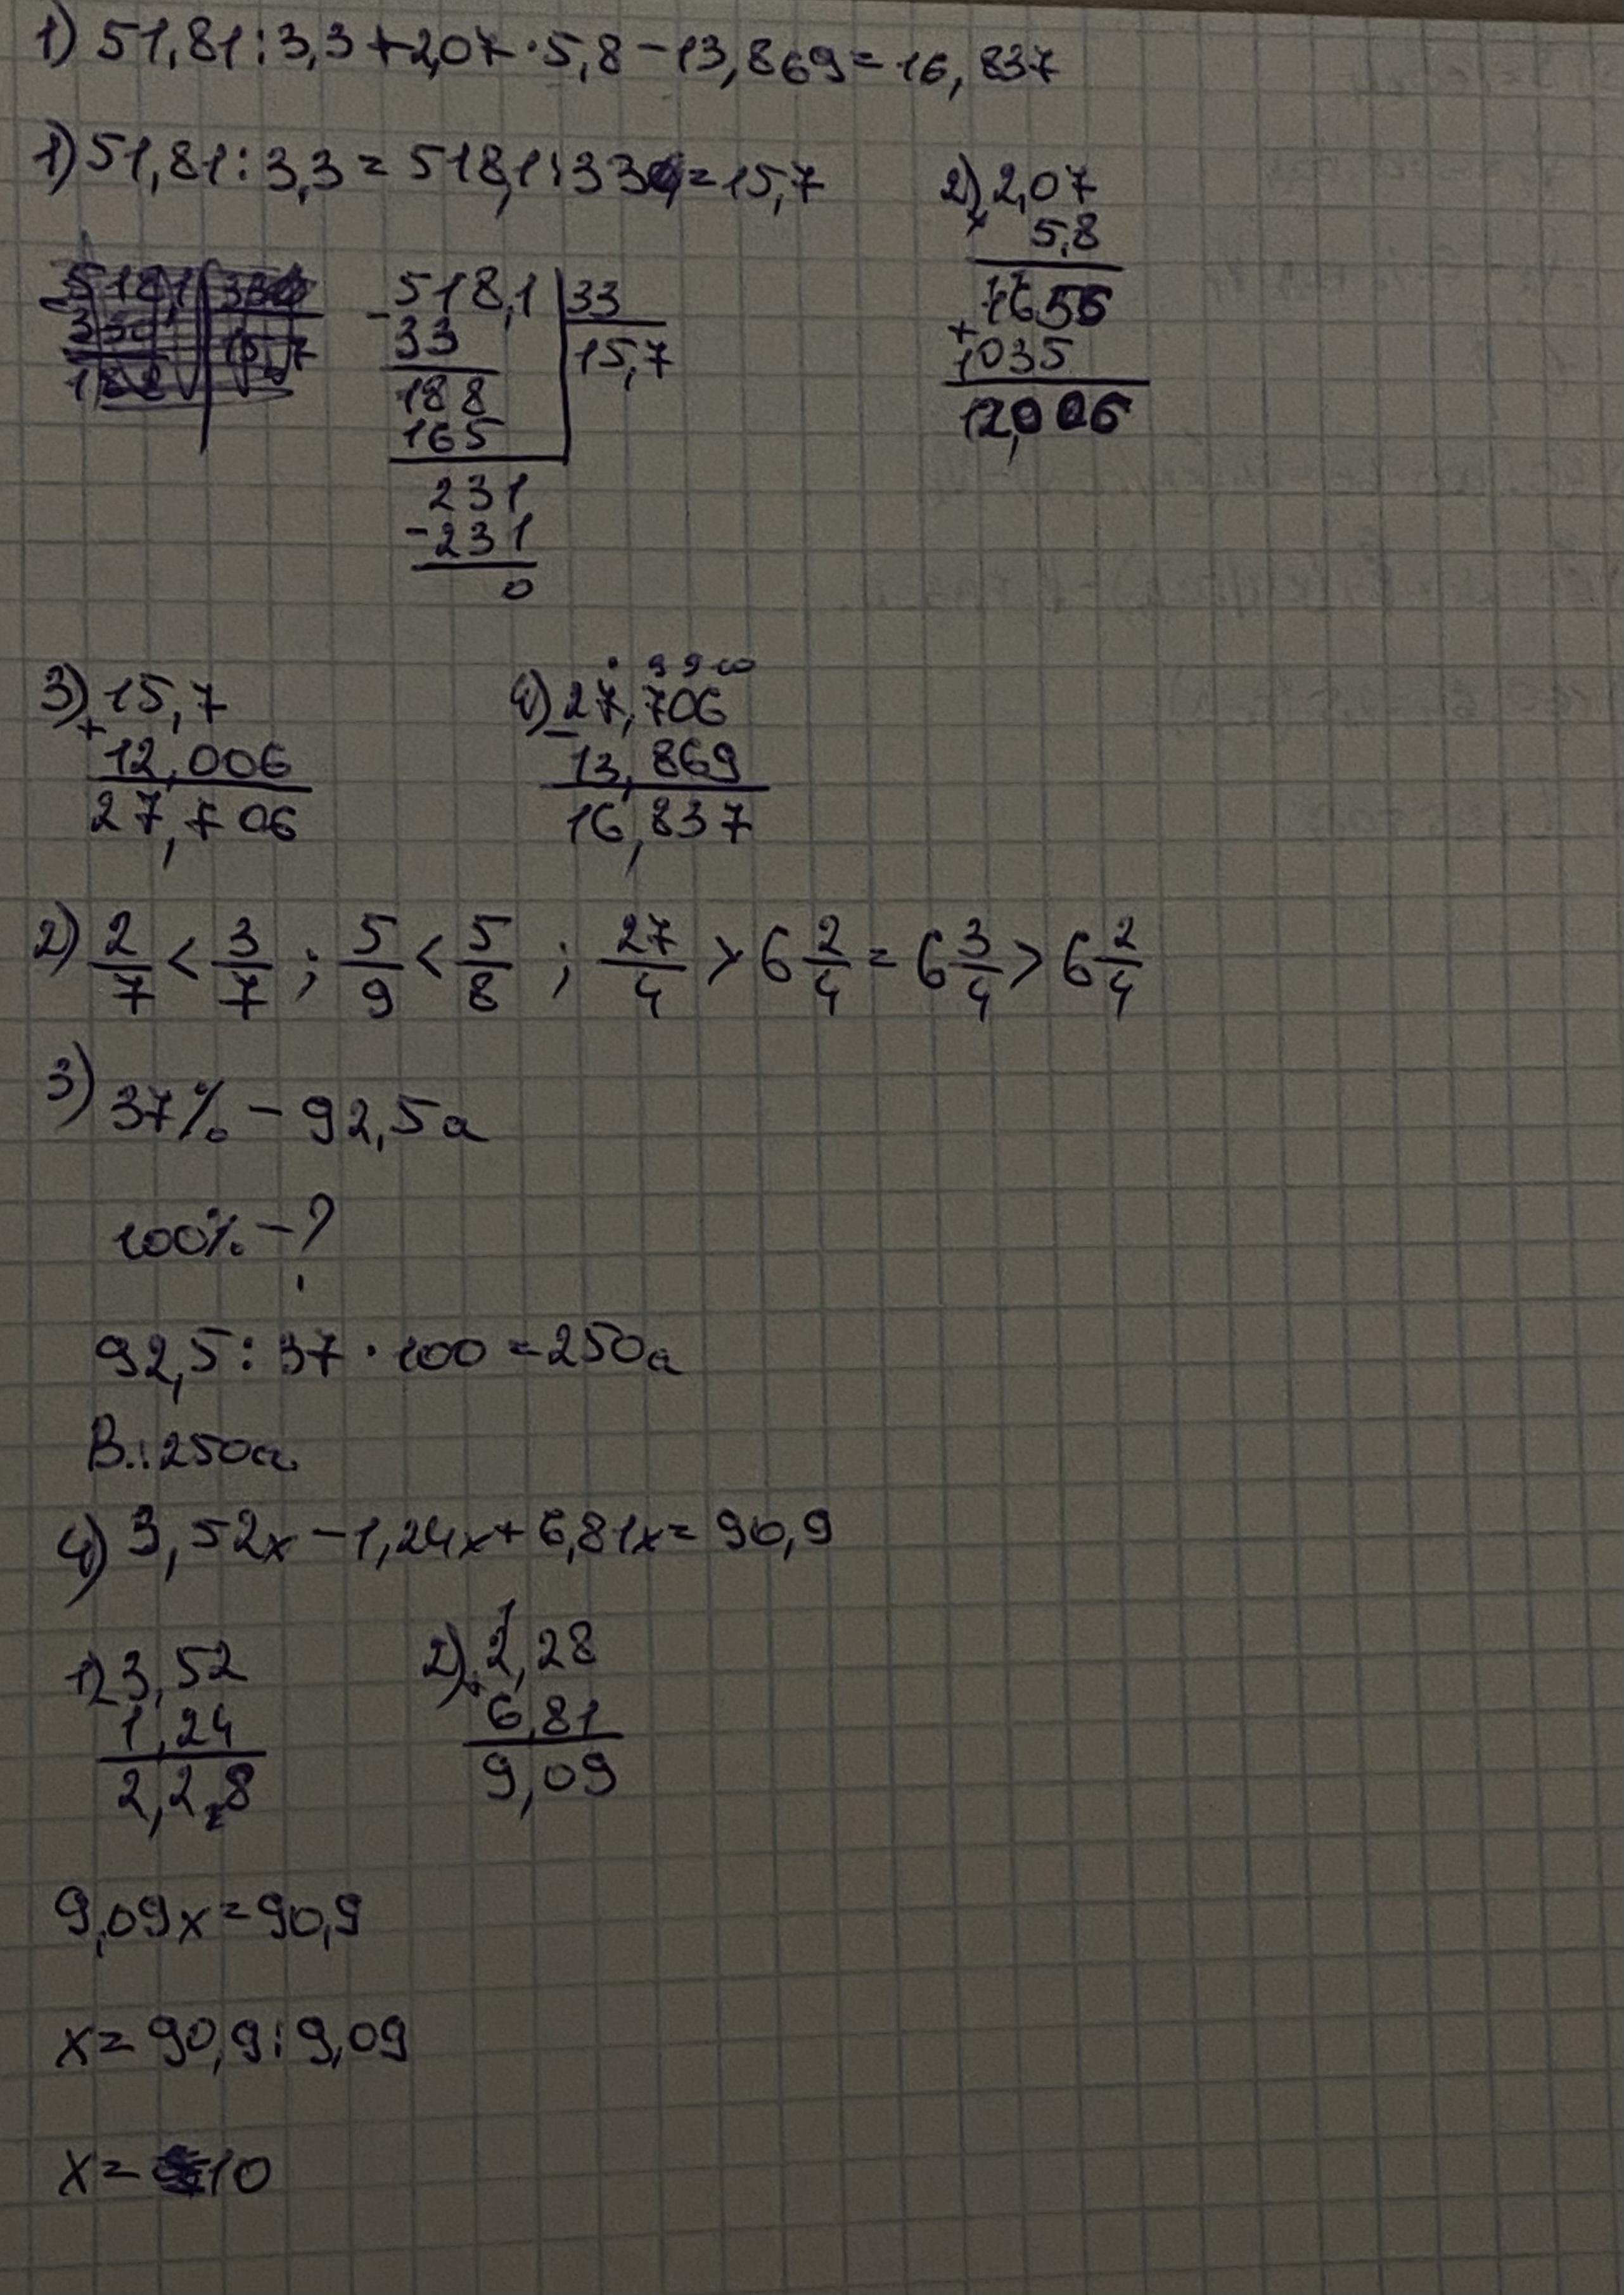 1) 51,81 : 3,3 + 2,07 · 5,8 - 13,869 = 16,837
1) 51,81 : 3,3 = 518,1 : 33 = 15,7
- 518,1 | 33
33 | 15,7
188
165
231
- 231
0
2) 2,07
× 5,8
1656
+
1035
12,006
3) 15,7
+
12,006
27,706
4) 27,706
9 9 10
-
13,869
16,837
2) 2/7 < 3/7 ; 5/9 < 5/8 ; 27/4 > 6 2/4 = 6 3/4 > 6 2/4
3) 37% - 92,5а
100% - ?
92,5 : 37 · 100 = 250а
В.: 250а
4) 3,52x - 1,24x + 6,81x = 90,9
1) 3,52
1,24
2,28
1
2) 2,28
+
6,81
9,09
9,09x = 90,9
x = 90,9 : 9,09
x = 10